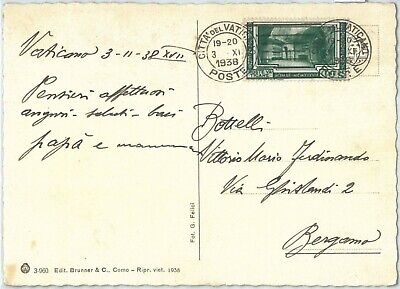 Vaticano 3-11-38 XVII
Pensieri affettuosi
auguri - saluti - baci
papà e mamma
CITTÀ DEL VATICANO
19-20
3 XI
1938
POSTE
VATICANO
POSTE
Bottelli
Vittorio Mario Ferdinando
Via Ghislandi 2
Bergamo
Fot. G. Felici
3-960 Edit. Brunner & C., Como - Ripr. viet. 1938